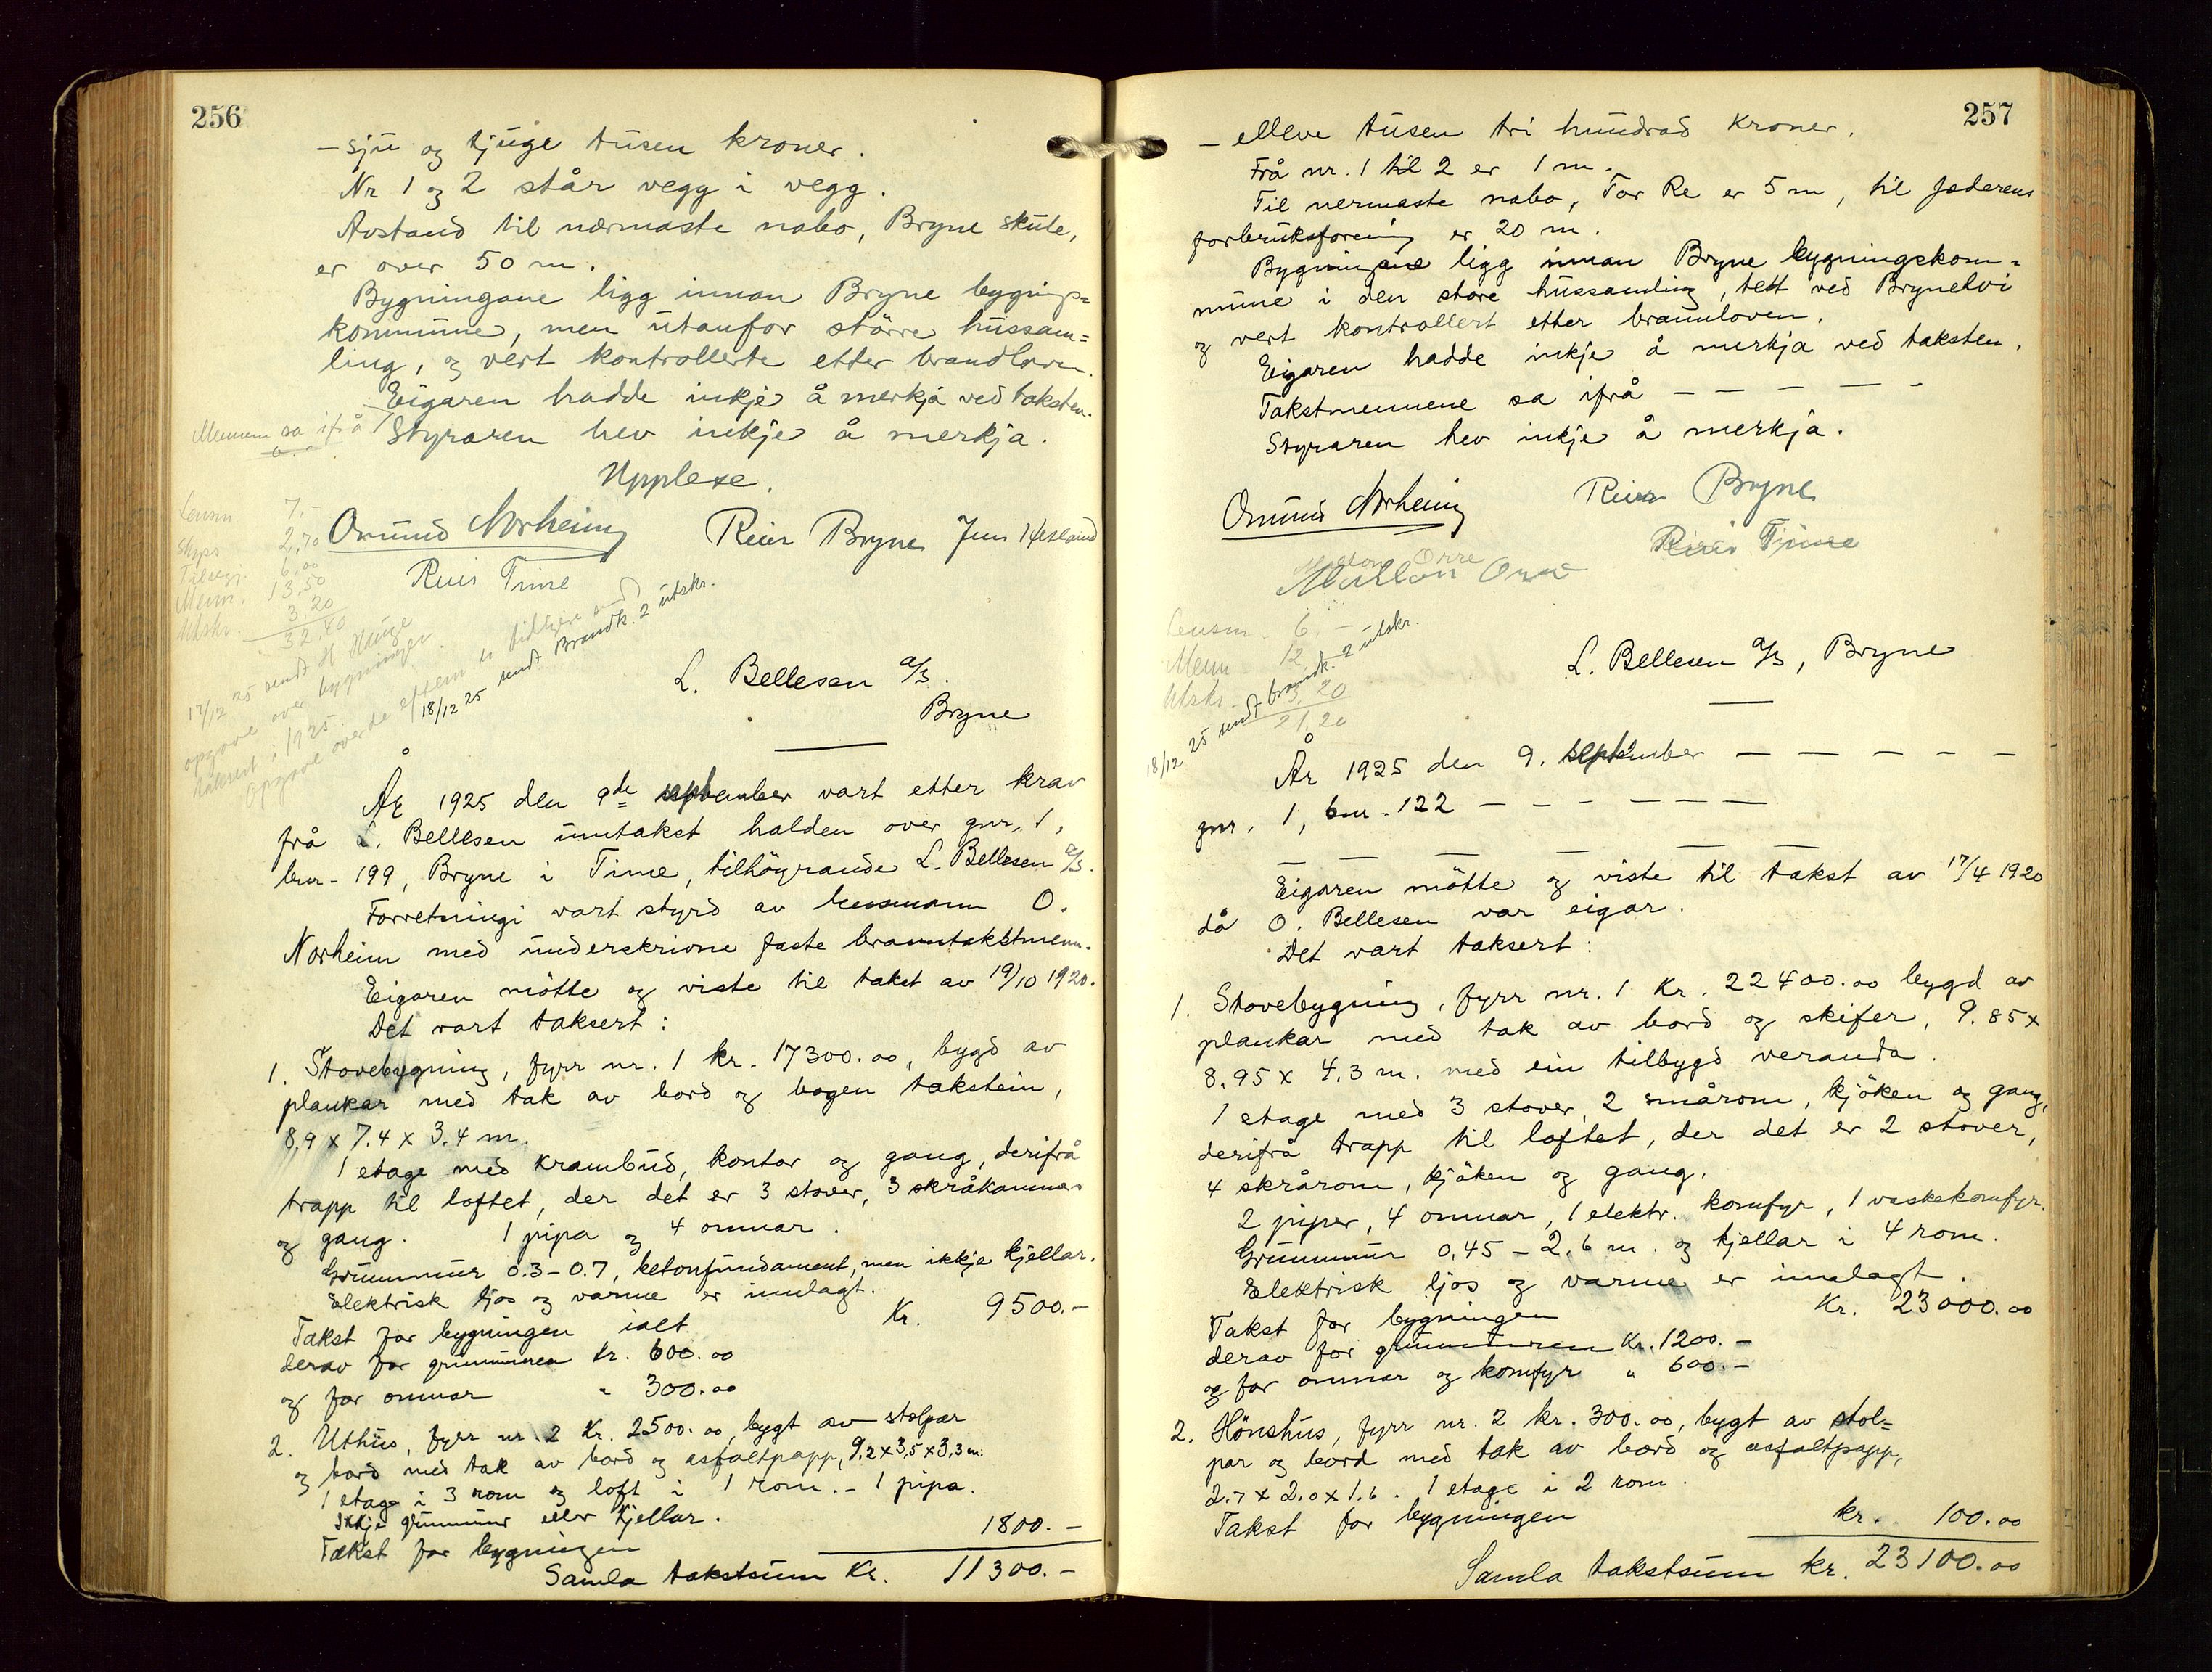 256
– sju og tjuge tusen kroner.
Nr 1 og 2 står vegg i vegg.
Avstand til nærmaste nabo, Bryne skule,
er over 50 m.
Bygningane ligg innan Bryne bygnings=
kommune, men utanfor större hussam=
ling, og vert kontrollerte etter brandloven.
Eigaren hadde inkje å merkja ved taksten.
Mennene sa ifrå
Styraren hev inkje å merkja.
Upplese.
Lensm 7.–
Skyss 2,70
Tilsegj. 6,00
Menn. 13,50
Utskr. 3.20
32,40
Omund Norheim Reier Bryne Jun Hesland
Reier Time
17/12 25 sendt H Hauge
opgave over bygningen
taksert i 1925.
Opgave over de
18/12 25 sendt Brandk. 2 utskr.
L. Bellesen A/S.
Bryne
År 1925 den 9de september vart etter krav
frå L. Bellesen umtakst halden over gnr. 1,
bnr. 199, Bryne i Time, tilhöyrande L. Bellesen A/S.
Forretningi vart styrd av lensmann O.
Norheim med underskrivne faste branntakstmenn.
Eigaren mötte og viste til takst av 19/10 1920.
Det vart taksert:
1. Stovebygning, fyrr nr. 1 kr. 17300.00, bygd av
plankar med tak av bord og bogen takstein,
8.9 x 7.4 x 3.4 m.
1 etage med krambud, kontor og gang, derifrå
trapp til loftet, der det er 3 stover, 3 skråkammer
og gang. 1 pipa og 4 omnar.
Grunnmur 0.3–0.7, betonfundament, men ikkje kjellar.
Elektrisk ljos og varme er innlagt.
Takst for bygningen ialt Kr. 9500.–
derav for grunnmuren kr. 600.00
og for omnar " 300.00
2. Uthus, fyrr nr. 2 Kr. 2500.00, bygt av stolpar
og bord med tak av bord og asfaltpapp, 9,2 x 3,5 x 3,3 m.
1 etage i 3 rom og loft i 1 rom. – 1 pipa.
Ikkje grunnmur eller kjellar.
Takst for bygningen 1800.–
Samla takstsum Kr. 11300.–
257
– elleve tusen tri hundrad kroner.
Frå nr. 1 til 2 er 1 m.
Til nermaste nabo, Tor Re er 5 m, til Jæderens
forbruksforening er 20 m.
Bygningane ligg innan Bryne bygningskom=
mune i den store hussamling, tett ved Brynelvi
og vert kontrollert etter brannloven.
Eigaren hadde inkje å merkja ved taksten.
Takstmennene sa ifrå – – – – –
Styraren hev inkje å merkja.
Omund Norheim Reier Bryne
Reier Time
Mallon Orre
Mallon Orre
Lensm. 6.–
Menn 12,
Utskr. 3,20
21,20
18/12 25 sendt brandk. 2 utskr.
L. Bellesen A/S, Bryne
År 1925 den 9. september – – – – –
gnr. 1, bnr. 122 – – – – – –
– – – – – –
Eigaren mötte og viste til takst av 17/4 1920
då O. Bellesen var eigar.
Det vart taksert:
1. Stovebygning, fyrr nr. 1 Kr. 22400.00 bygd av
plankar med tak av bord og skifer, 9.85 x
8.95 x 4.3 m. med ein tilbygd veranda.
1 etage med 3 stover, 2 smårom, kjöken og gang,
derifrå trapp til loftet, der det er 2 stover,
4 skrårom, kjöken og gang.
2 piper, 4 omnar, 1 elektr. komfyr, 1 vaskekomfyr.
Grunnmur 0.45–2.6 m. og kjellar i 4 rom.
Elektrisk ljos og varme er innlagt.
Takst for bygningen Kr. 23000.00
derav for grunnmuren Kr. 1200.–
og for omnar og komfyr " 600.–
2. Hönshus, fyrr nr. 2 kr. 300.00, bygt av stol=
par og bord med tak av bord og asfaltpapp,
2.7 x 2.0 x 1.6. 1 etage i 2 rom.
Takst for bygningen kr. 100.00
Samla takstsum kr. 23100.00